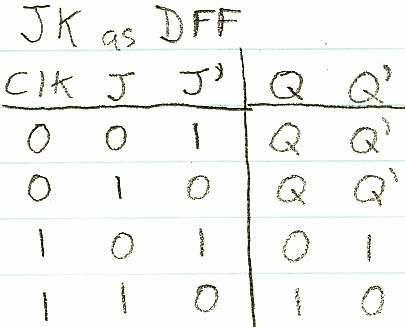 JK as DFF
Clk J J' Q Q'
0 0 1 Q Q'
0 1 0 Q Q'
1 0 1 0 1
1 1 0 1 0